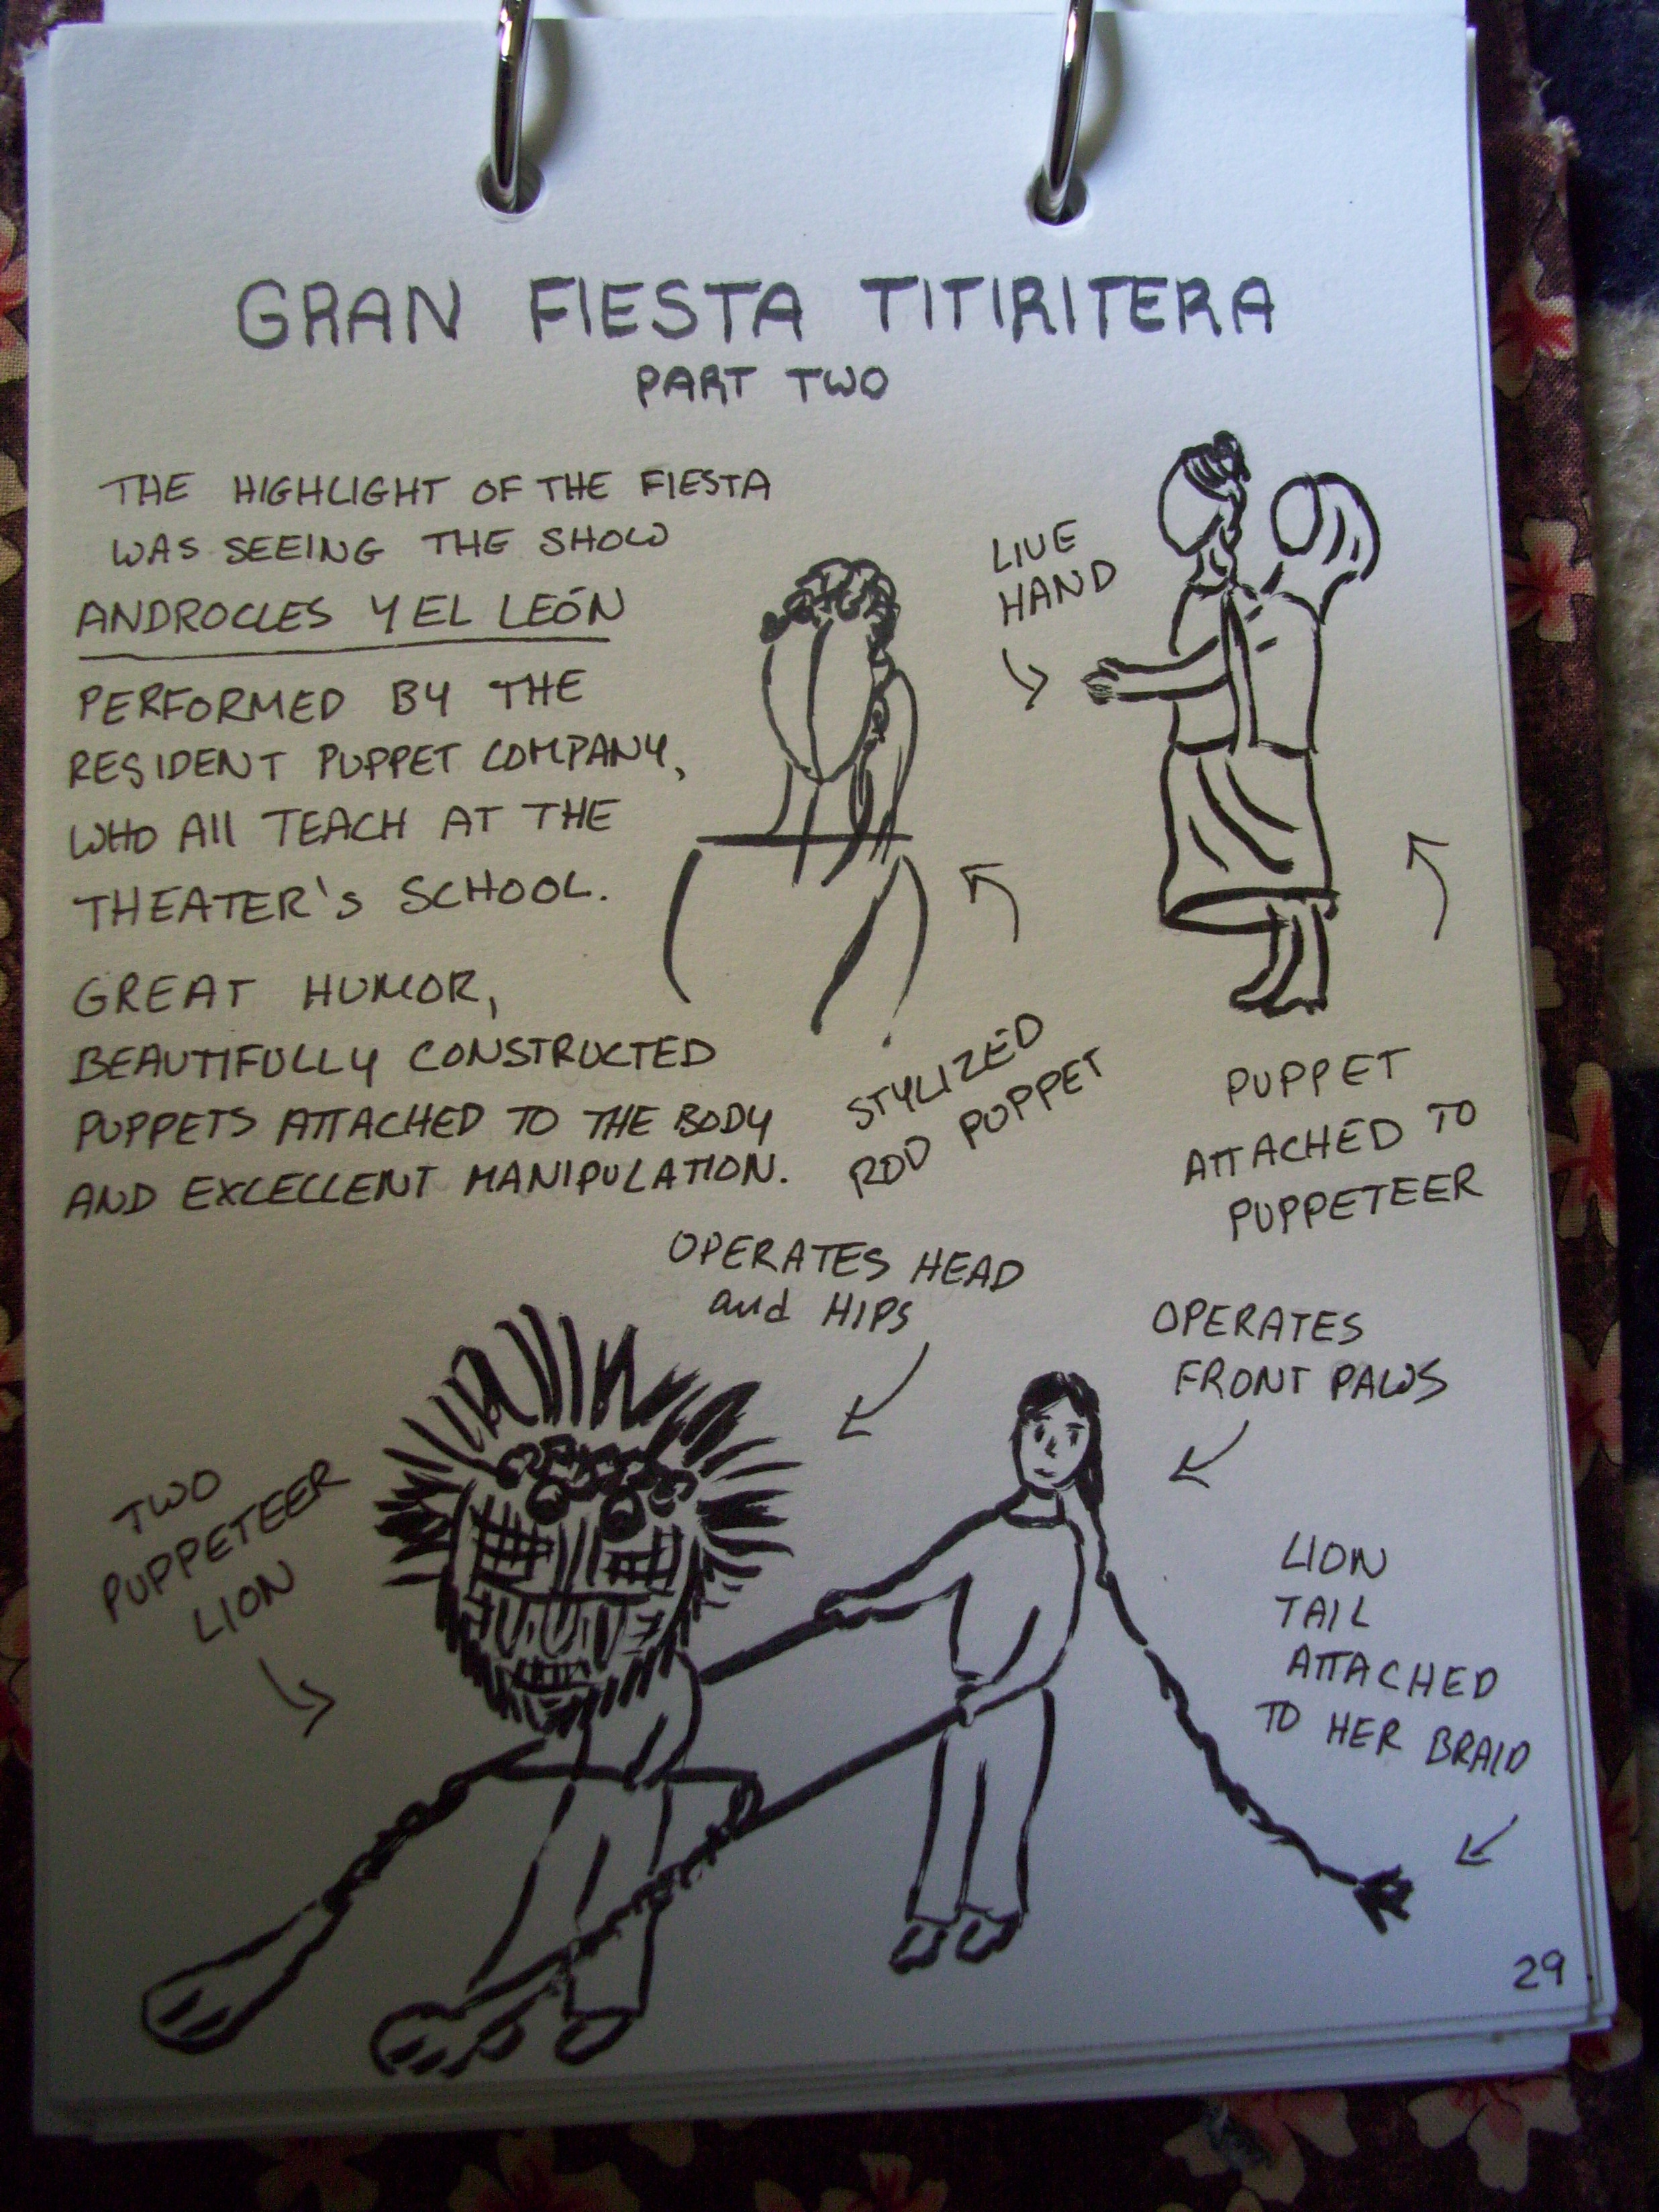 GRAN FIESTA TITIRITERA
PART TWO
THE HIGHLIGHT OF THE FIESTA
WAS SEEING THE SHOW
ANDROCLES Y EL LEÓN
PERFORMED BY THE
RESIDENT PUPPET COMPANY,
WHO All TEACH AT THE
THEATER'S SCHOOL.
GREAT HUMOR,
BEAUTIFULLY CONSTRUCTED
PUPPETS ATTACHED TO THE BODY
AND EXCELLENT MANIPULATION.
LIVE
HAND
STYLIZED
ROD PUPPET
PUPPET
ATTACHED TO
PUPPETEER
OPERATES HEAD
and HIPS
OPERATES
FRONT PAWS
TWO
PUPPETEER
LION
LION
TAIL
ATTACHED
TO HER BRAID
29